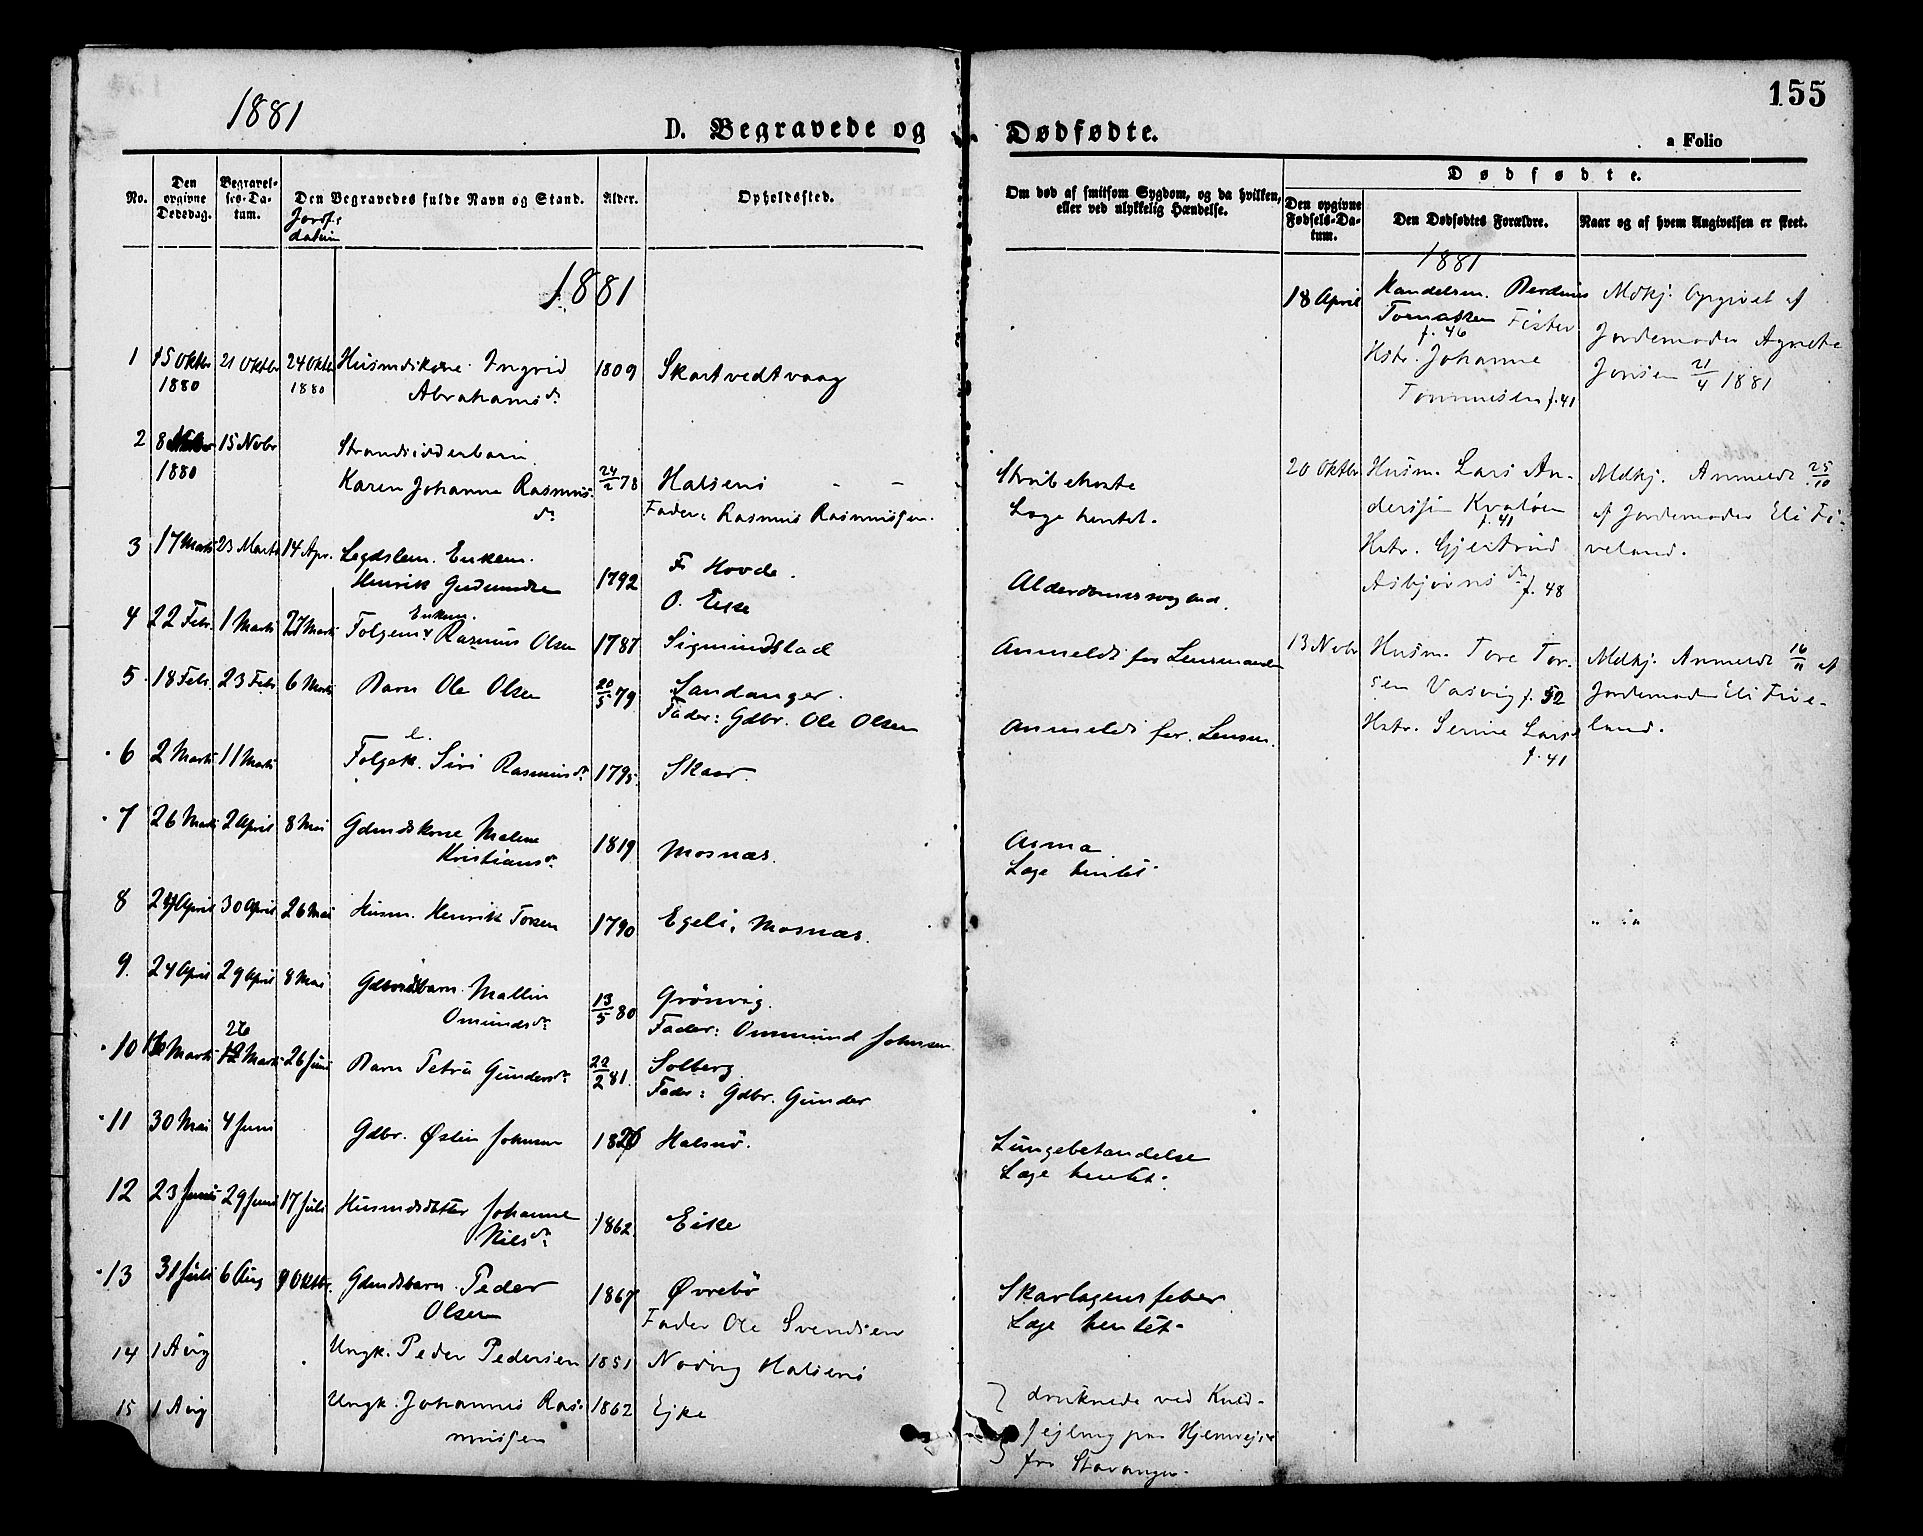 155
1881
D. Begravede og Dødfødte.
a Folio
No.
Den opgivne Dødsdag.
Begravelses-Datum.
Den Begravedes fulde Navn og Stand.
Jordf. datum
Alder.
Opholdssted.
Om død af smitsom Sygdom, og da hvilken, eller ved ulykkelig Hændelse.
Dødfødte.
Den opgivne Fødsels-Datum.
Den Dødfødtes Forældre.
Naar og af hvem Angivelsen er skeet.
1881
1 15 Oktbr 1880 21 Oktbr 24 Oktbr 1880 Husmdskone Ingrid
Abrahamsdr. 1809 Skartvedtvaag
2 8 Novbr 1880 15 Nvbr Strandsidderbarn
Karen Johanne Rasmusdr. 24/2 78 Halsenö
Fader: Rasmus Rasmussen.
Strubehoste
Læge hentet.
3 17 Marts 23 Marts 14 Apr. Legdslem. Enkem.
Henrik Gudmundsen 1792 F. Hovde.
O. Eike
Alderdomssvaghed.
4 22 Febr. 1 Marts 27 Marts Enkem.
Folgem. Rasmus Olsen 1787 Sigmundstad
Anmeldt for Lensmanden
5 18 Febr. 23 Febr 6 Marts Barn Ole Olsen 20/5 79 Sandanger.
Fader: Gdbr. Ole Olsen
Anmeldt for Lensm.
6 2 Marts 11 Marts e.
Folgek. Siri Rasmusdr. 1795. Skaar.
7 26 Marts 2 April 8 Mai Gdmdskone Malene
Kristiansdr. 1819 Mosnæs.
Asma
Læge hentet
8 24 April 30 April 26 Mai Husm. Henrik Torsen 1790 Egeli, Mosnæs.
9. 24 April 29 April 8 Mai Gdbrdsbarn Mallin
Omundsdr. 13/5 80 Grönvig.
Fader: Ommund Johnsen
10 Marts 26 Marts 26 Juni Barn Petra Gundersdr. 22/2 81. Solberg
Fader: Gdbr. Gunder
11 30 Mai 4 Juni Gdbr. Østen Johnsen Halsnö.
Lungebetændelse
Læge hentet.
12 23 Juni 29 Juni 17 Juli Husmdsdatter Johanne
Nilsdr. 1862 Eike
13 31 Juli 6 Aug 9 Oktbr. Gdmdsbarn Peder
Olsen 1867 Øvrebö
Fader Ole Svendsen
Skarlagensfeber
Læge hentet.
14 1 Aug Ungk. Peder Pedersen 1851 Nodvig Halsenö
15 1 Aug Ungk. Johannes Rasmussen 1862 Ejke
druknede ved Kuldsejling paa Hjemvejen
fra Stavanger.
1881
18 April Handelsm. Berdines
Tornæssen Fister
f. 46
Hstr. Johanne
Tommesen f. 41
Mdkj. Opgivet af
Jordemoder Agnete
Jonsen 21/4 1881
20 Oktbr Husm. Lars An-
derssen Kvaløen
f. 41
Hstr. Gjertrud
Asbjörnsdr. f. 48
Mdkj. Anmeldt 25/10
af Jordemoder Eli Fi-
veland.
13 Nvbr Husm. Tore Tor-
sen Vasvig f. 52
Hstr. Serine Larsd
f. 41
Mdkj. Anmeldt 16/11 af
Jordemoder Eli Five-
land.